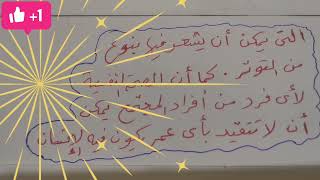 +1
التى يمكن أن يشعر فيها بنوع
من التوتر . كما أن الصحة النفسية
لأى فرد من أفراد المجتمع يمكن
أن لا تتقيد بأى عمر يكون فيه الإنسان